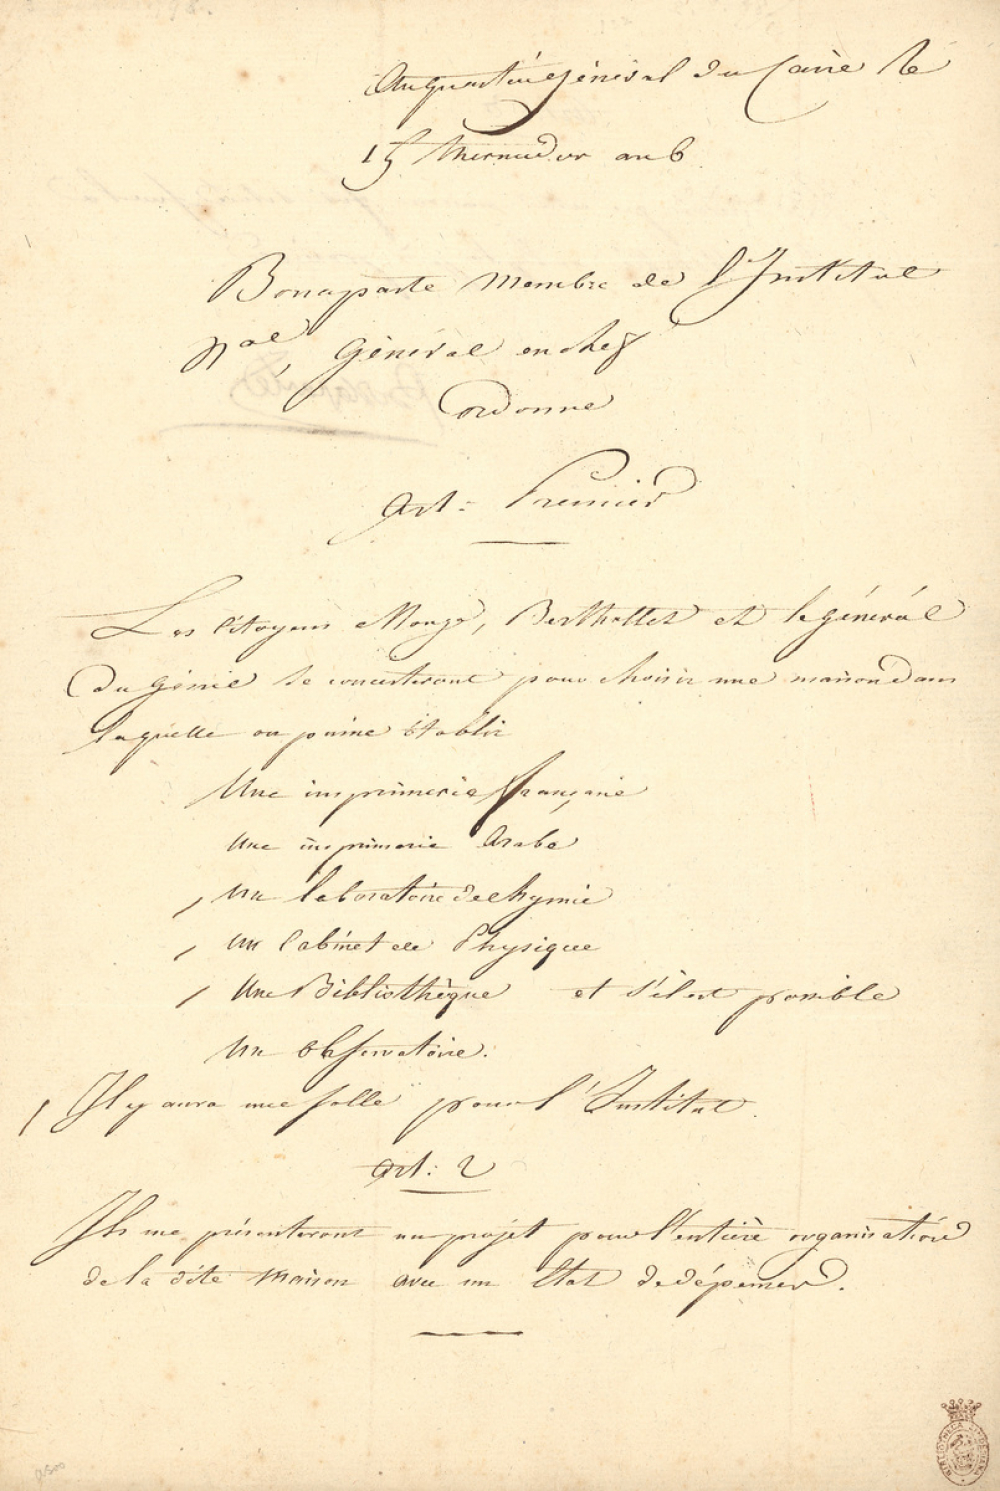 Au quartier général du Caire le
15 thermidor an 6
Bonaparte Membre de l'Institut
Nal, Général en chef
Ordonne
Art: Premier
Les citoyens Monge, Berthollet et le général
du génie se concerteront pour choisir une maison dans
laquelle on puisse établir
Une imprimerie française
Une imprimerie Arabe
Un laboratoire de chymie
Un Cabinet de Physique
Une Bibliothèque et s'il est possible
Un observatoire.
Il y aura une salle pour l'Institut.
Art: 2
Ils me présenteront un projet pour l'entière organisation
de la dite Maison avec un État de dépenses.
BIBLIOTHECA LINDESIANA